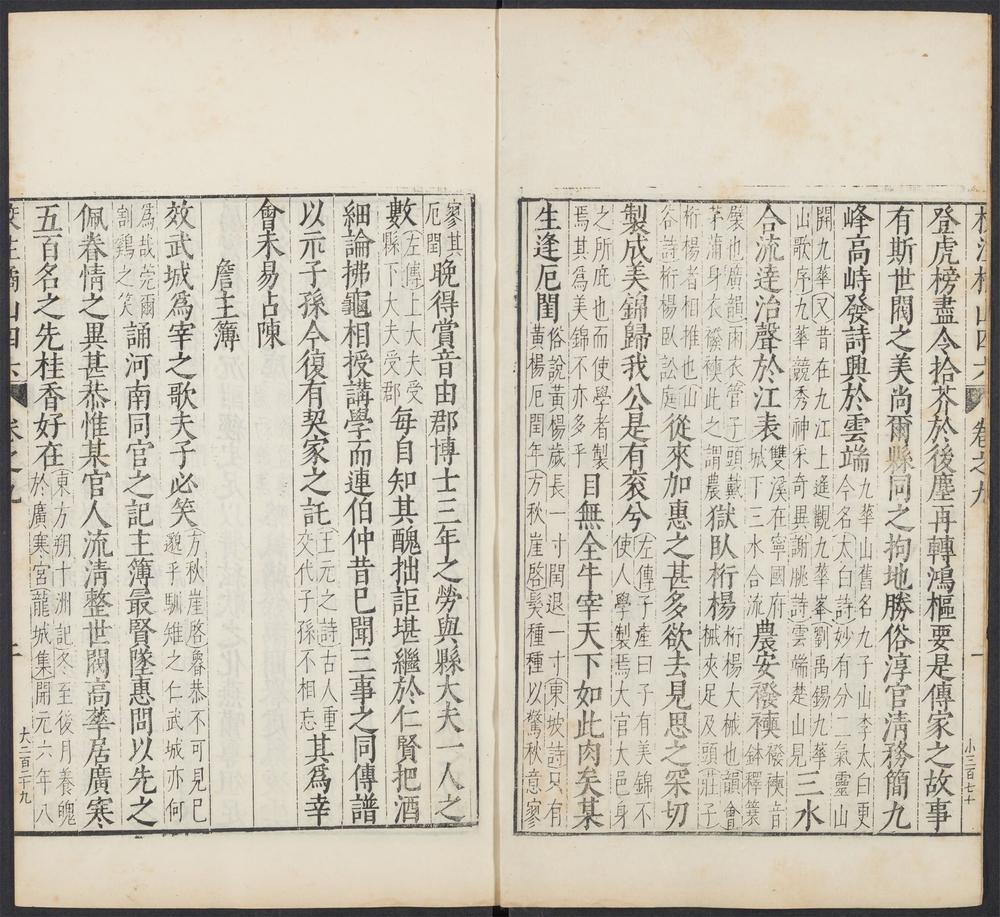 校注橘山四六 卷之九 一 小三百七十
登虎榜盡令拾芥於後塵再轉鴻樞要是傳家之故事
有斯世閥之美尚爾縣同之拘地勝俗淳官淸務簡九
峰高峙發詩興於雲端九華山舊名九子山李太白更今名太白詩妙有分二氣靈山
開九華又昔在九江上遙觀九華峯劉禹錫九華山歌序九華競秀神采奇異謝朓詩雲端楚山見三水
合流達治聲於江表雙溪在寧國府城下三水合流農安襏襫襏襫音鉢釋蓑
襞也廣韻雨衣管子頭戴茅蒲身衣襏襫此之謂農獄臥桁楊桁楊大械也韻會械夾足及頭莊子
桁楊者相推也山谷詩桁楊臥訟庭從來加惠之甚多欲去見思之深切
製成美錦歸我公是有衮兮左傳子產曰子有美錦不使人學製焉大官大邑身
之所庇也而使學者製焉其爲美錦不亦多乎目無全牛宰天下如此肉矣某
生逢厄閏俗說黃楊歲長一寸閏退一寸東坡詩只有黃楊厄閏年方秋崖啓髮種種以驚秋意寥
寥其厄閏晚得賞音由郡博士三年之勞與縣大夫一人之
數左傳上大夫受縣下大夫受郡每自知其醜拙詎堪繼於仁賢把酒
細論拂龜相授講學而連伯仲昔已聞三事之同傳譜
以示子孫今復有契家之託王元之詩古人重交代子孫不相忘其爲幸
會未易占陳
詹主簿
效武城爲宰之歌夫子必笑方秋崖啓魯恭不可見已邈乎馴雉之仁武城亦何
爲哉莞爾割鷄之笑誦河南同官之記主簿最賢墜惠問以先之
佩眷情之異甚恭惟某官人流淸整世閥高華居廣寒
五百名之先桂香好在東方朔十洲記冬至後月養魄於廣寒宮龍城集開元六年八
校注橘山四六 卷之九 大二百二十九